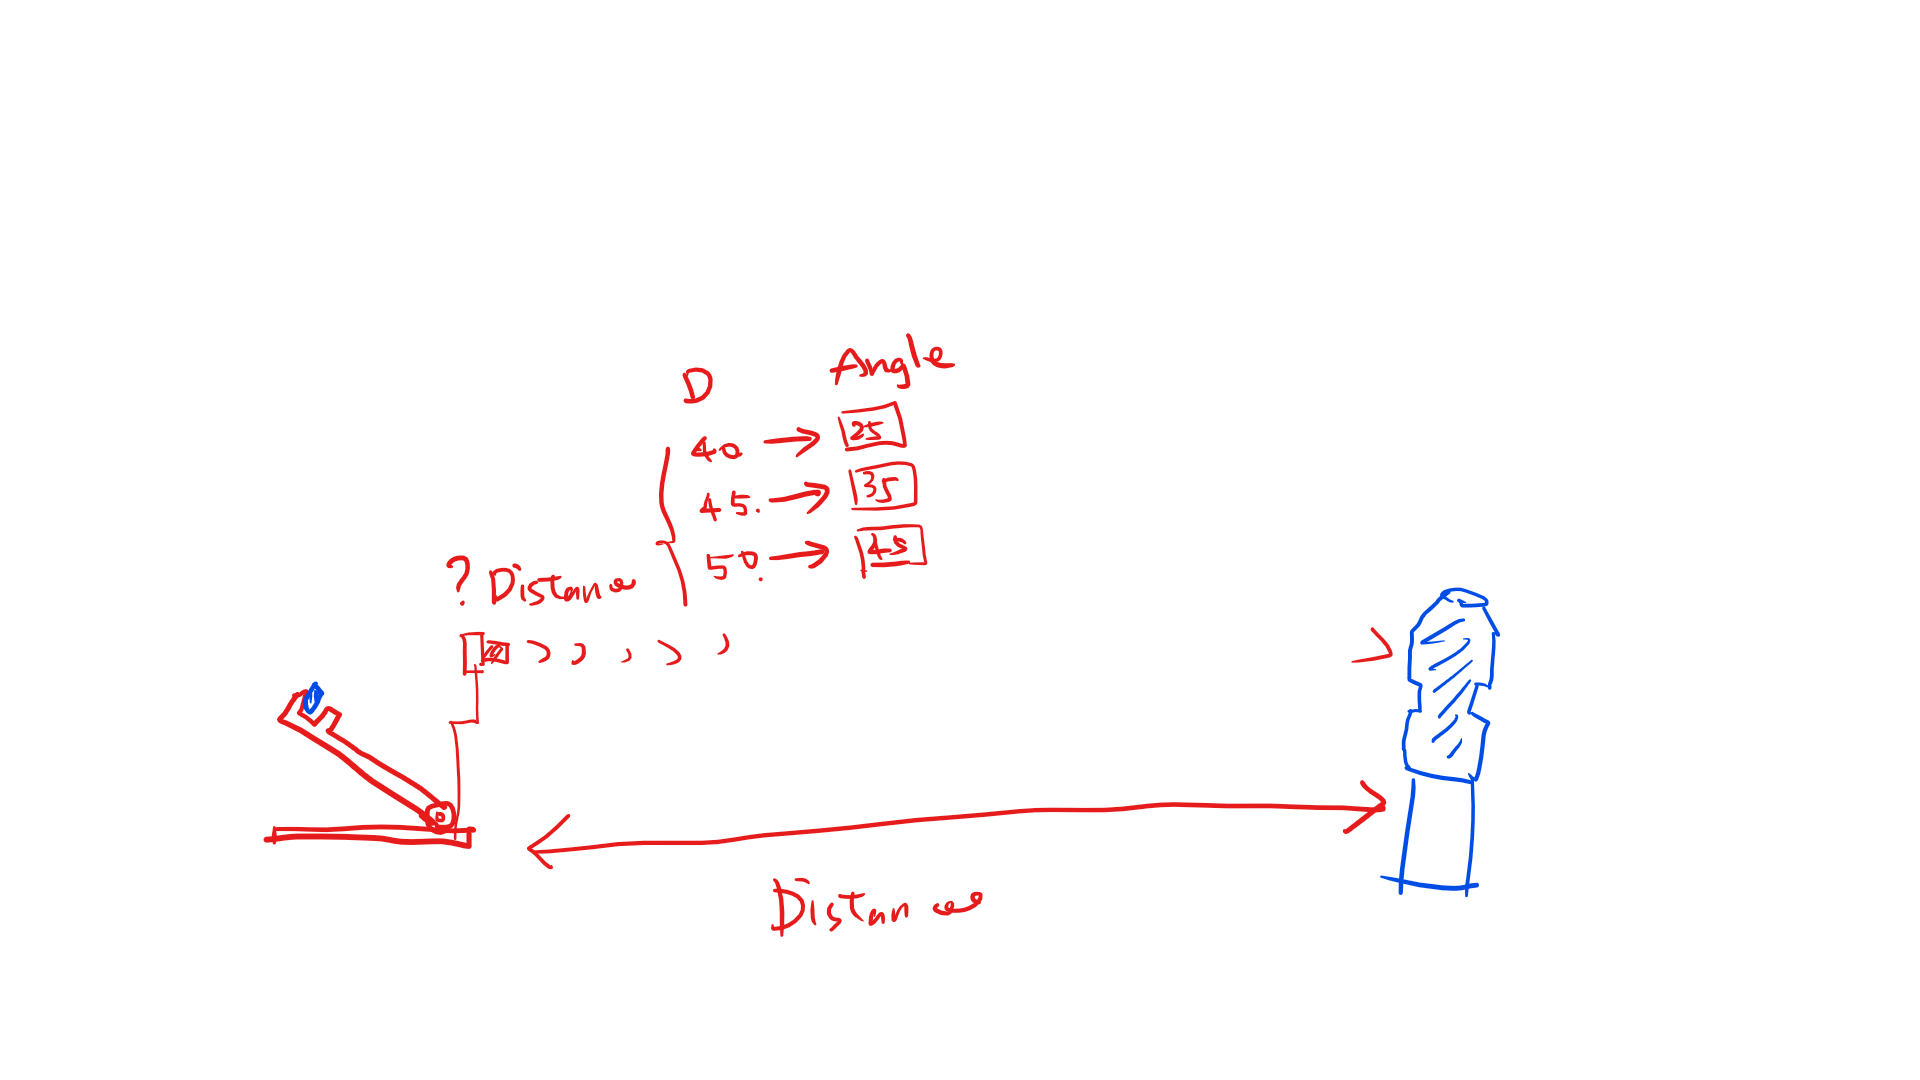 D Angle
40 → 25
45. → 35
50. → 45
? Distance
Distance